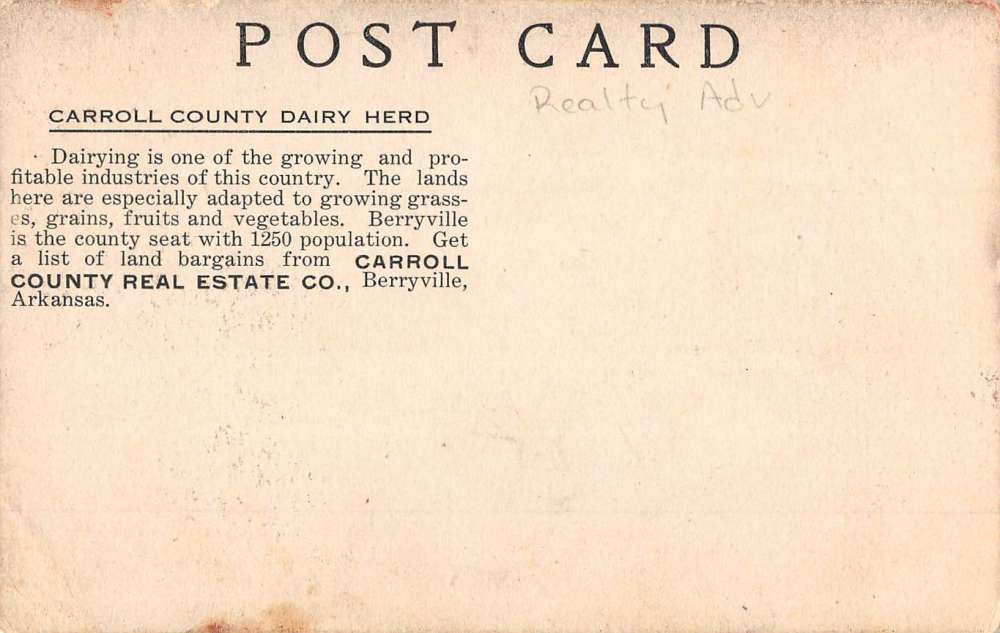 POST CARD
Realty Adv
CARROLL COUNTY DAIRY HERD
Dairying is one of the growing and pro-
fitable industries of this country. The lands
here are especially adapted to growing grass-
es, grains, fruits and vegetables. Berryville
is the county seat with 1250 population. Get
a list of land bargains from CARROLL
COUNTY REAL ESTATE CO., Berryville,
Arkansas.